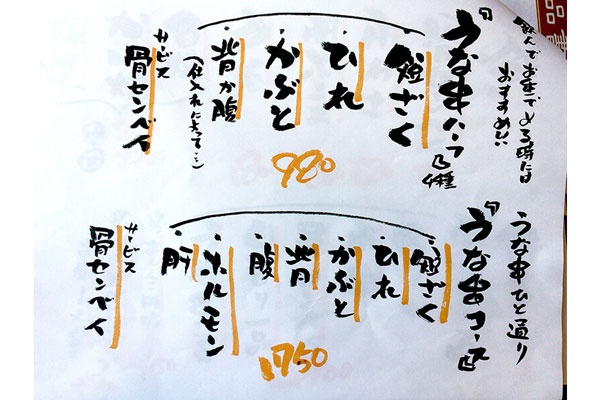 飲んでお車で〆る時には
おすすめい
『うな串ハーフ』4種
短ざく
ひれ
かぶと
背か腹
(仕入れに方って…)
サービス
骨センベイ
980
うな串ひと通り
『うな串コース』
短ざく
ひれ
かぶと
背
腹
ホルモン
肝
サービス
骨センベイ
1750